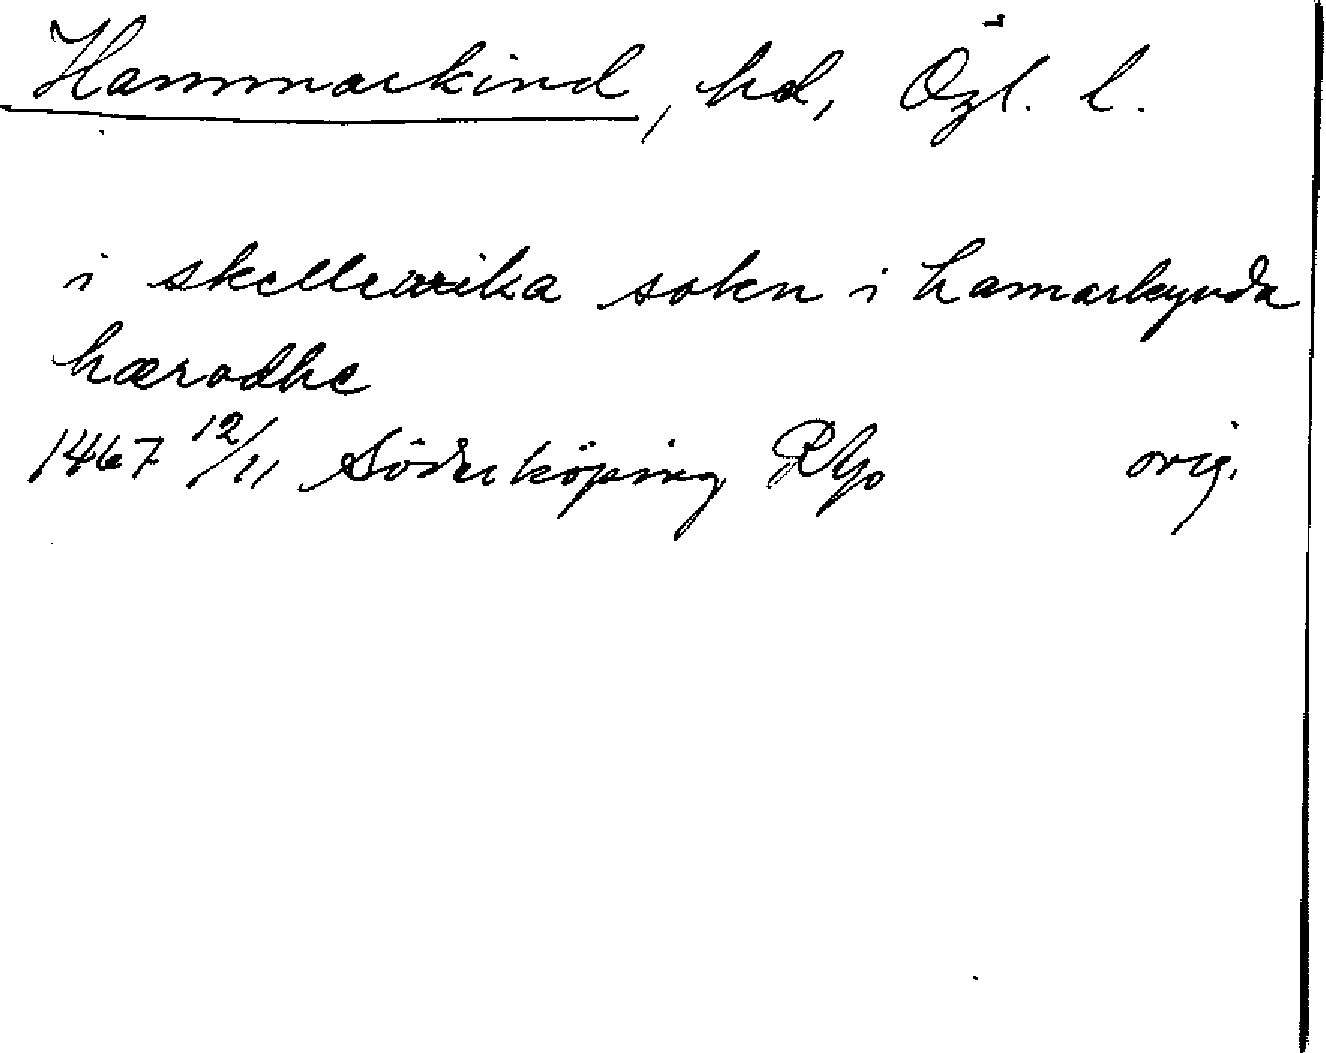 Hammarkind, hd, Ögl. l.
i skelleuika sokn i hamarkynda
hæradhe
1467 12/11 Söderköping RAp orig.